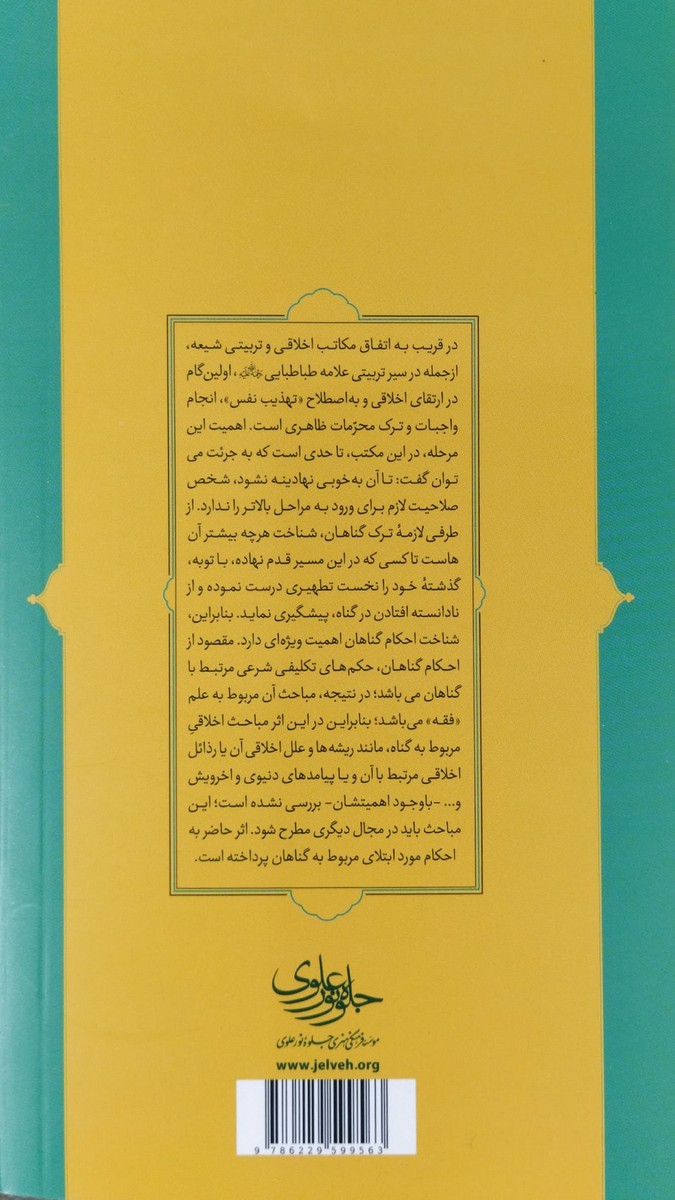 در قریب به اتفاق مکاتب اخلاقی و تربیتی شیعه،
ازجمله در سیر تربیتی علامه طباطبایی رحمه‌الله، اولین گام
در ارتقای اخلاقی و به‌اصطلاح «تهذیب نفس»، انجام
واجبات و ترک محرّمات ظاهری است. اهمیت این
مرحله، در این مکتب، تا حدی است که به جرئت می
توان گفت: تا آن به‌خوبی نهادینه نشود، شخص
صلاحیت لازم برای ورود به مراحل بالاتر را ندارد. از
طرفی لازمهٔ ترک گناهان، شناخت هرچه بیشتر آن
هاست تا کسی که در این مسیر قدم نهاده، با توبه،
گذشتهٔ خود را نخست تطهیری درست نموده و از
نادانسته افتادن در گناه، پیشگیری نماید. بنابراین،
شناخت احکام گناهان اهمیت ویژه‌ای دارد. مقصود از
احکام گناهان، حکم‌های تکلیفی شرعی مرتبط با
گناهان می باشد؛ در نتیجه، مباحث آن مربوط به علم
«فقه» می‌باشد؛ بنابراین در این اثر مباحث اخلاقیِ
مربوط به گناه، مانند ریشه‌ها و علل اخلاقی آن یا رذائل
اخلاقی مرتبط با آن و یا پیامدهای دنیوی و اخرویش
و... -باوجود اهمیتشان- بررسی نشده است؛ این
مباحث باید در مجال دیگری مطرح شود. اثر حاضر به
احکام مورد ابتلای مربوط به گناهان پرداخته است.
جلوه نور علوی
موسسه فرهنگی هنری جلوهٔ نور علوی
www.jelveh.org
9 786229 599563